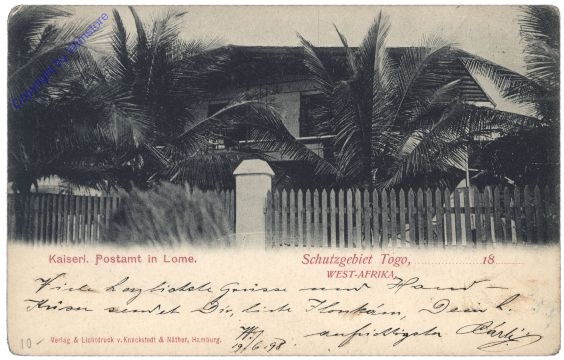 Kaiserl. Postamt in Lome.
Schutzgebiet Togo, 18
WEST-AFRIKA.
Viele herzlichste Grüsse und Hand-
Küsse sendet Dir, liebe Ilonkám, Dein
aufrichtigster
19/6.98.
Verlag & Lichtdruck v. Knackstedt & Näther, Hamburg.
10-